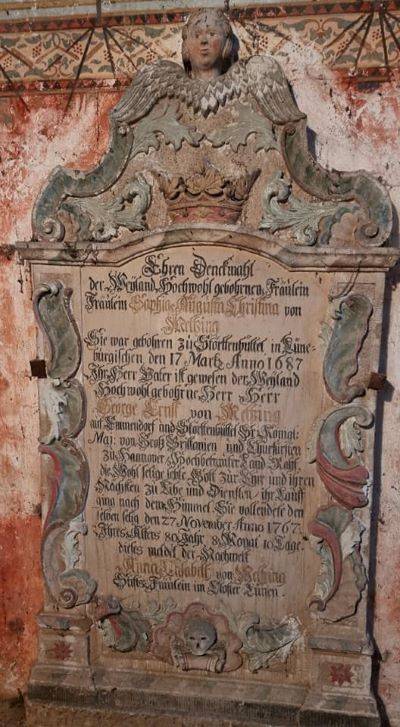 Ehren Denckmahl
der Weyland Hochwohl gebohrnen Fräulein
Fräulein Sophia Augusta Christina von
Melzing
Sie war gebohren zu Störtenbüttel in Lüne-
bürgischen den 17 Martz Anno 1687
Ihr Herr Vater ist gewesen der Weyland
Hochwohl gebohrne Herr Herr
George Ernst von Melzing
auf Emmendorf und Störtenbüttel Sr. Königl.
Maj: von Groß Britanien und Churfürstl.
zu Hannover Hochbetrauter Land Raht,
die Wohl selige lebte Gott zur Ehr und ihren
Nächsten zu Libe und Diensten, ihr Lauff
ging nach dem Himmel. Sie vollendete den
selben selig den 27 November Anno 1767.
Ihres Alters 80 Jahr 8 Monat 10 Tage.
dieses meldet der Nachwelt
Anna von Melzing
Stifts Fräulein im Closter Lünen